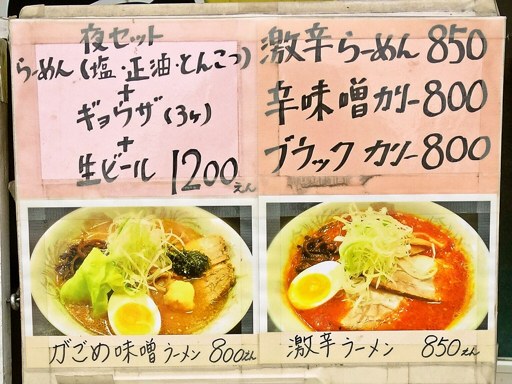 夜セット
らーめん(塩・正油・とんこつ)
+
ギョウザ(3ヶ)
+
生ビール 1200えん
激辛らーめん 850
辛味噌カリー 800
ブラックカリー 800
がごめ味噌ラーメン 800えん
激辛ラーメン 850えん